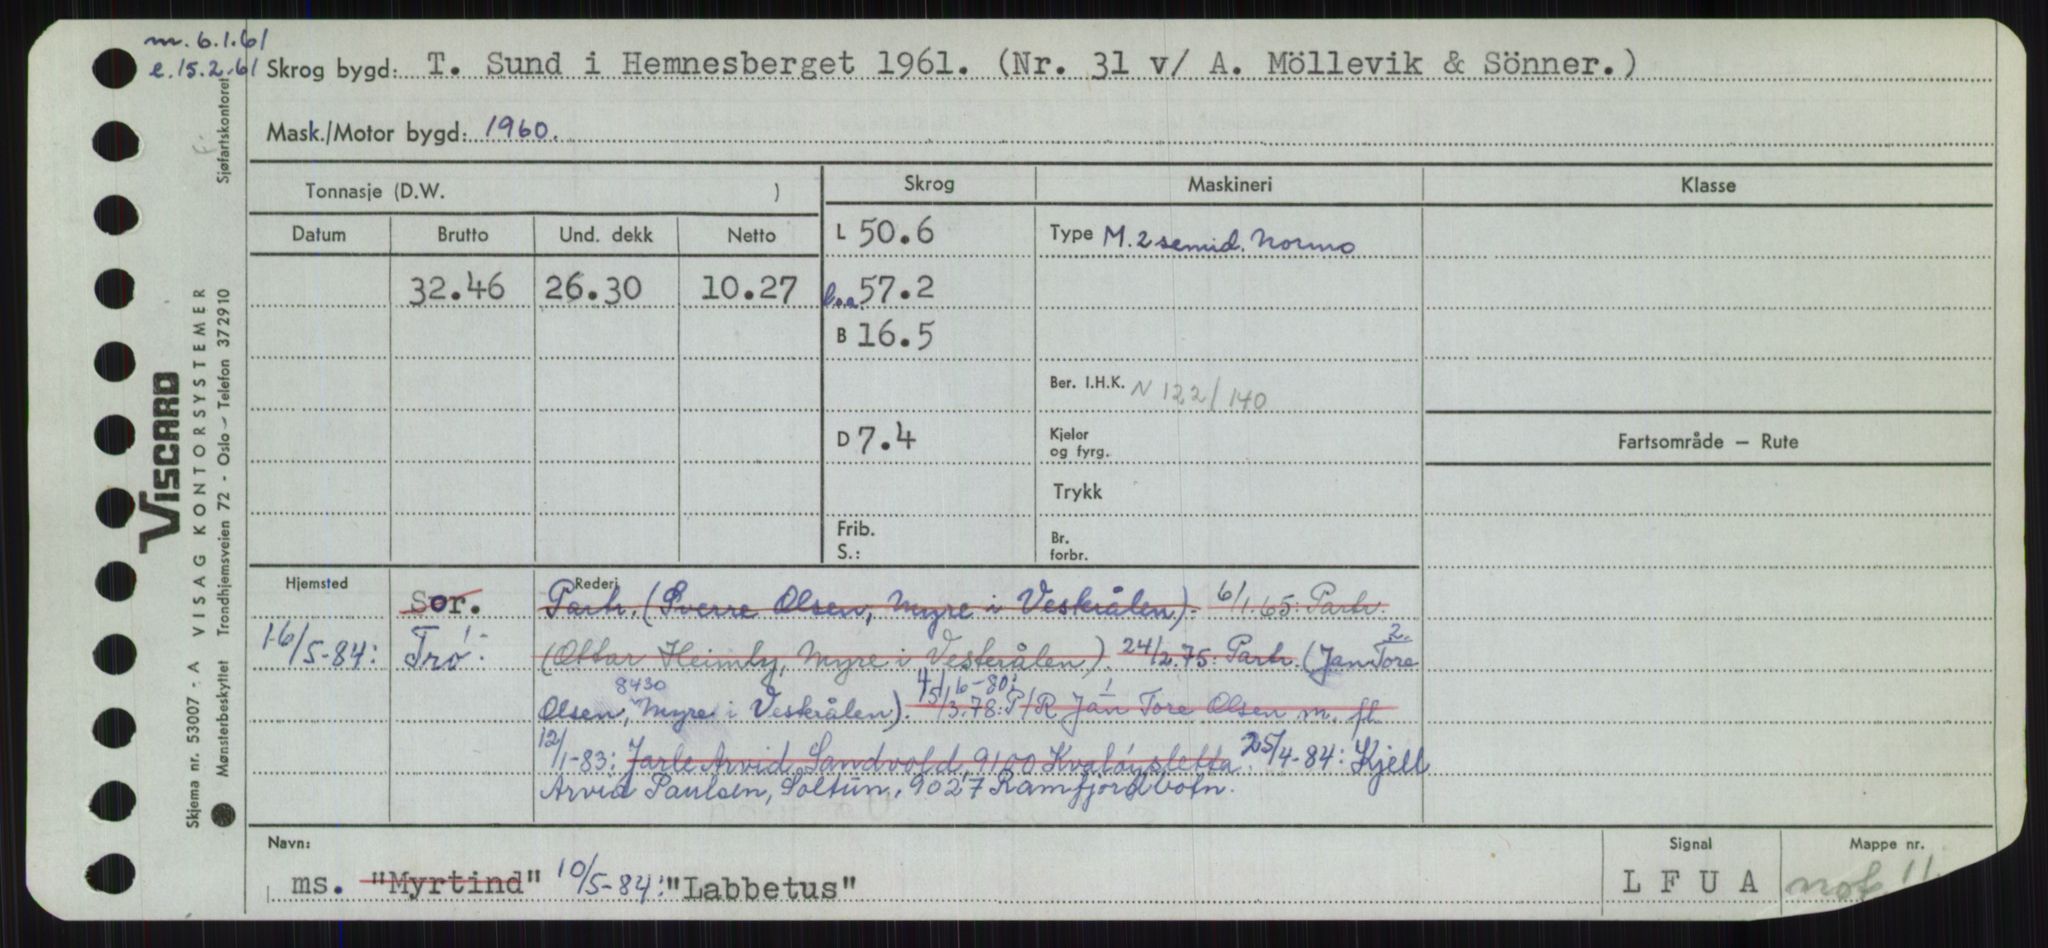 m. 6.1.61
e. 15.2.61 Skrog bygd: T. Sund i Hemnesberget 1961. (Nr. 31 v/ A. Möllevik & Sönner.)
Mask./Motor bygd: 1960.
Sjøfartskontoret
Tonnasje (D.W. )
Skrog
Maskineri
Klasse
Datum Brutto Und. dekk Netto
L 50.6
Type M. 2 semid. Normo
32.46 26.30 10.27
l.o.a. 57.2
B 16.5
Ber. I.H.K. N 122/140
D 7.4
Kjeler
og fyrg.
Fartsområde — Rute
Trykk
Frib.
S.:
Br.
forbr.
Hjemsted
Rederi
Sor. Partr. (Sverre Olsen, Myre i Vesterålen). 6/1.65: Partr.
16/5-84: Trö. (Ottar Heimly, Myre i Vesterålen). 24/2.75: Partr. (Jan Tore 2.
Olsen, 8430 Myre i Vesterålen). 15/3.78: P/R Jan 1 Tore Olsen m. fl.
4/6-80:
12/1-83: Jarle Arvid Sandvold, 9100 Kvaløysletta. 25/4-84: Kjell
Arvid Paulsen, Soltun, 9027 Ramfjordbotn.
Navn:
ms. "Myrtind" 10/5-84: "Labbetus"
Signal
L F U A
Mappe nr.
not 11
VISCARD
Skjema nr. 53007 - A VISAG KONTORSYSTEMER
Mønsterbeskyttet Trondhjemsveien 72 - Oslo - Telefon 372910